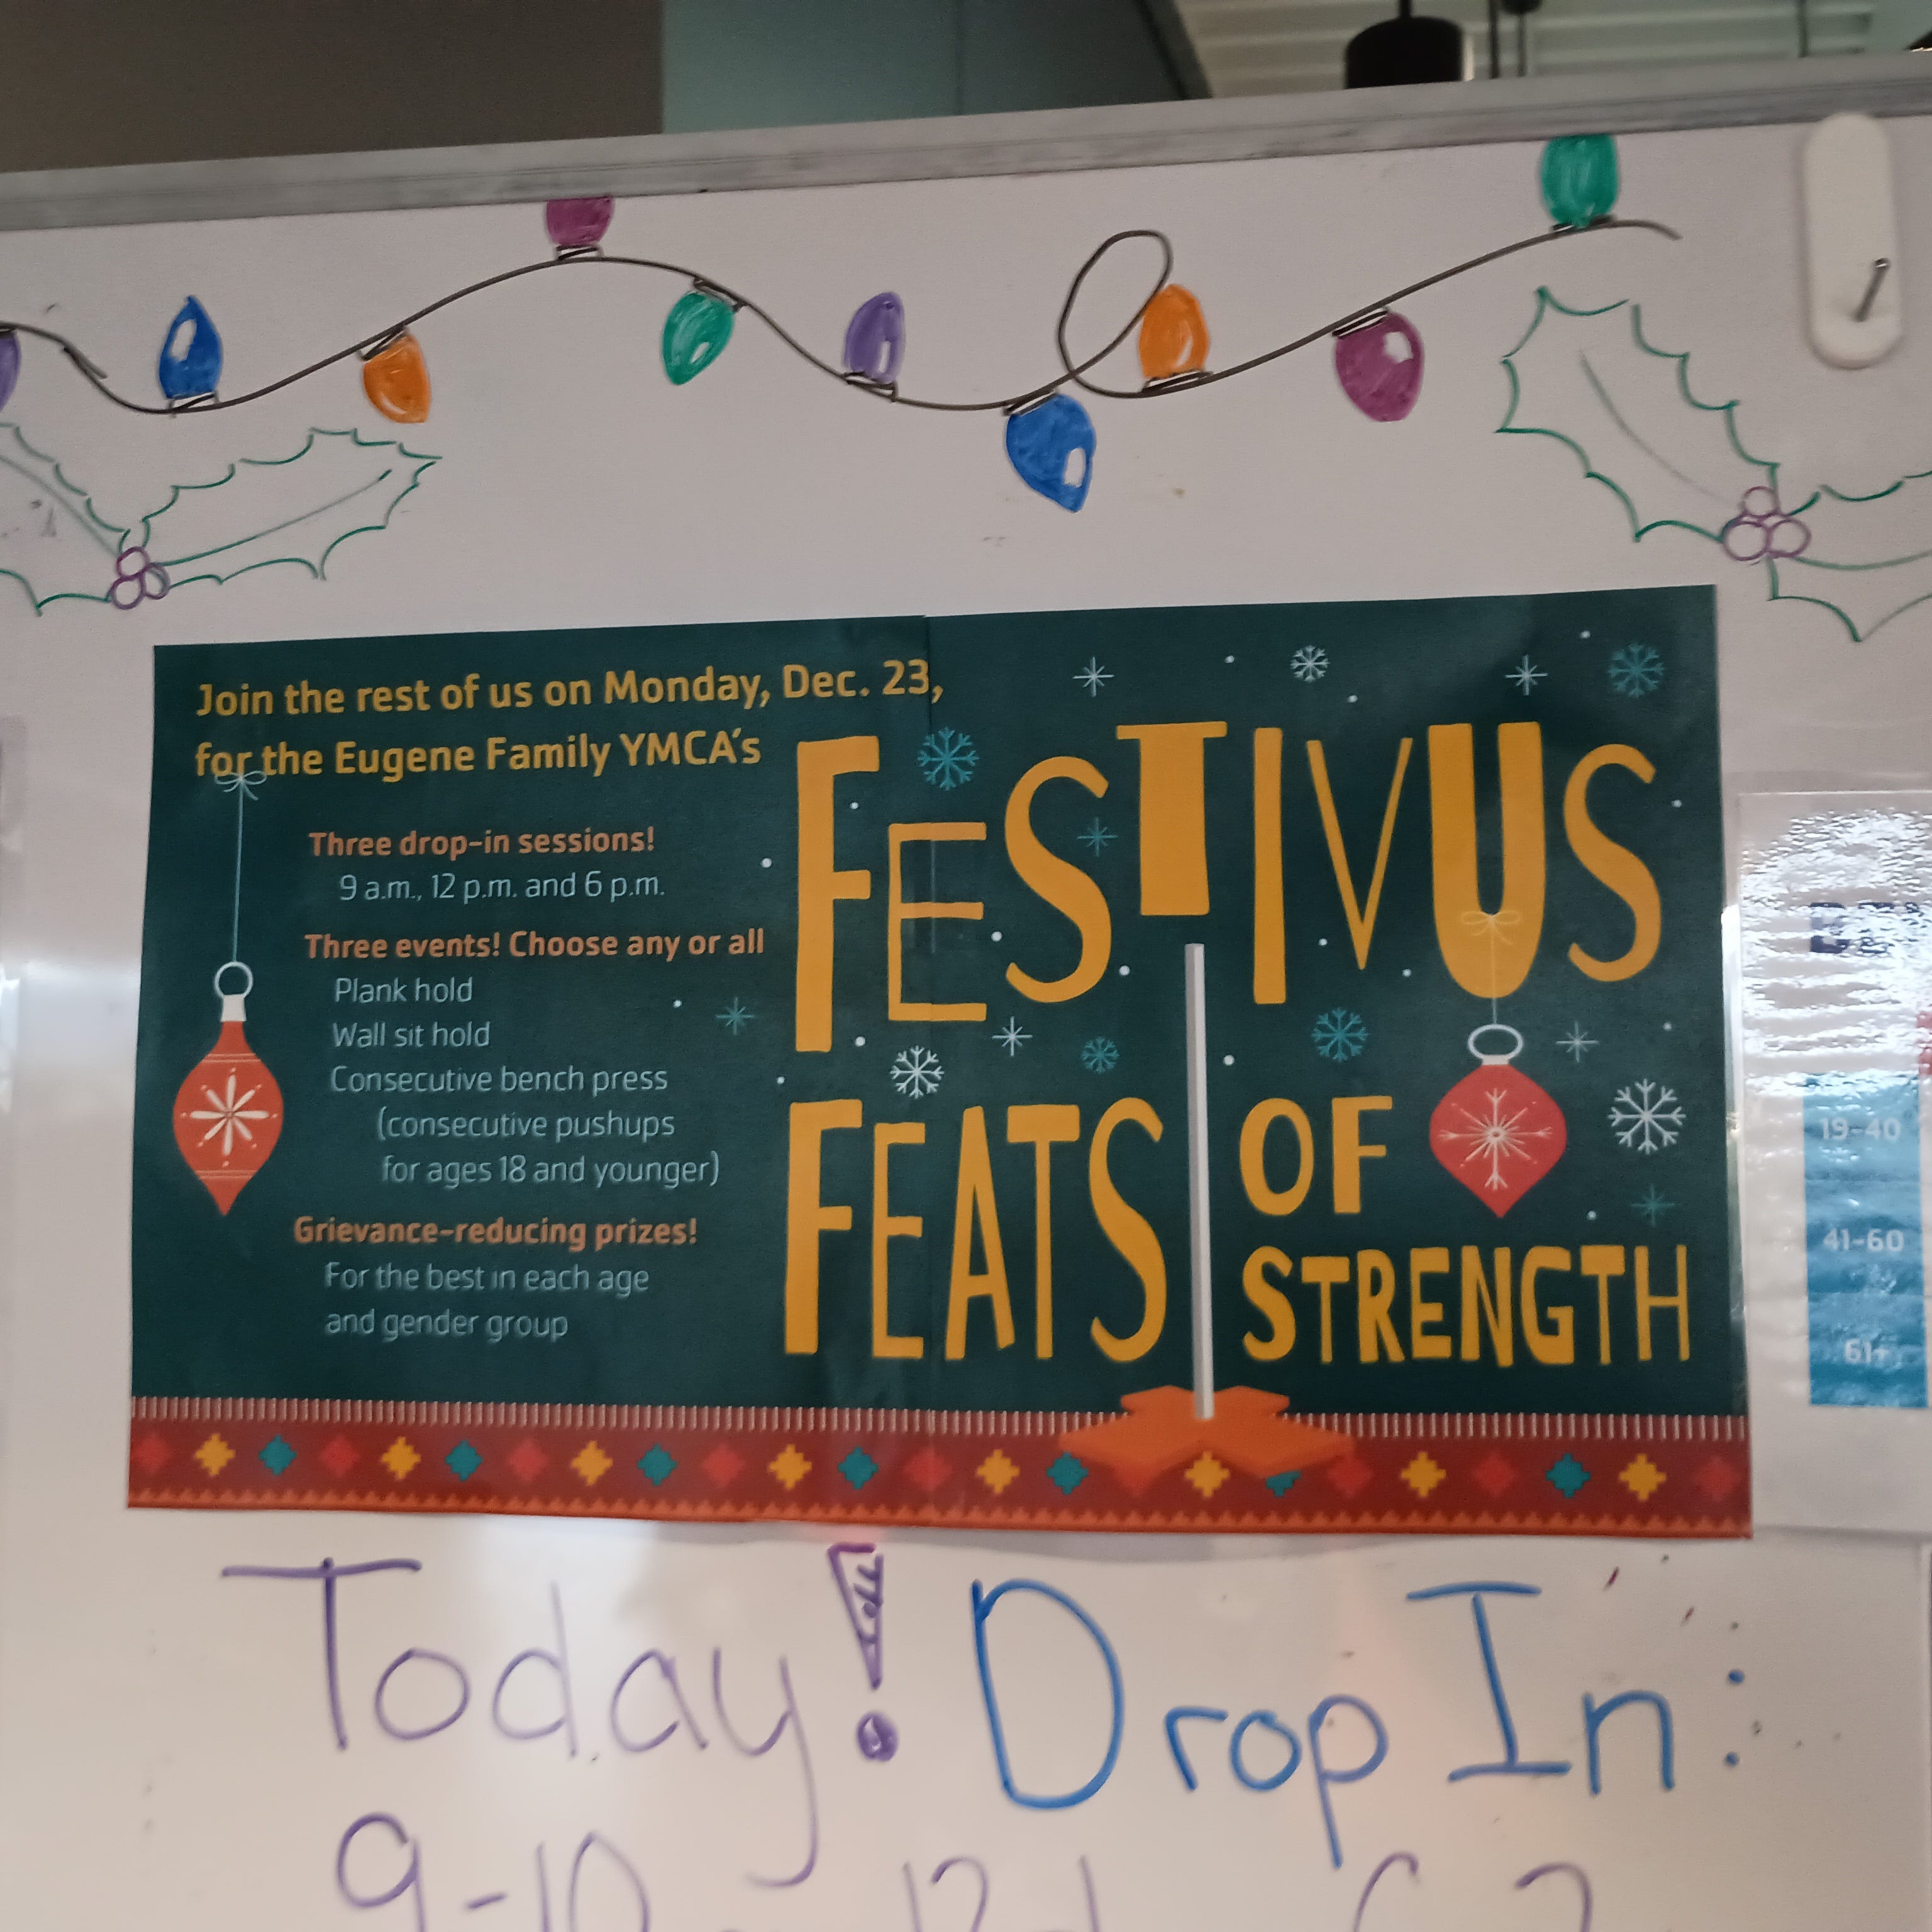 Join the rest of us on Monday, Dec. 23,
for the Eugene Family YMCA's
FESTIVUS
FEATS OF
STRENGTH
Three drop-in sessions!
9 a.m., 12 p.m. and 6 p.m.
Three events! Choose any or all
Plank hold
Wall sit hold
Consecutive bench press
(consecutive pushups
for ages 18 and younger)
Grievance-reducing prizes!
For the best in each age
and gender group
19-40
41-60
61+
Today! Drop In:
9-10